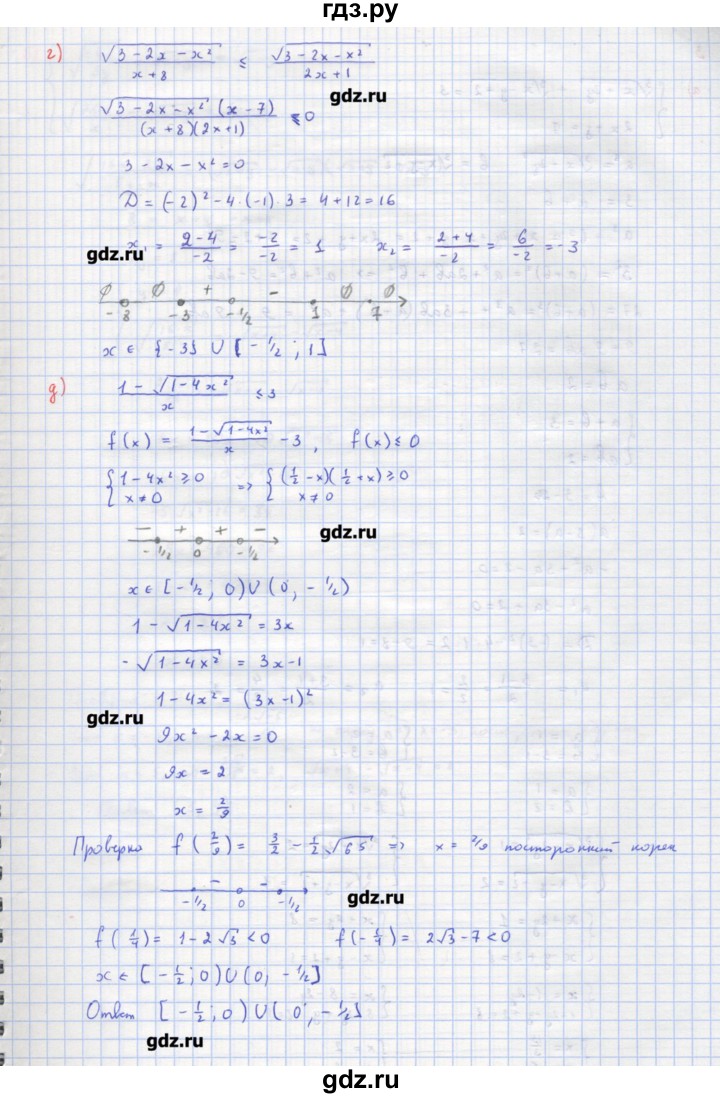 гдз.ру
г) √(3 - 2x - x²) / (x + 8) ≤ √(3 - 2x - x²) / (2x + 1)
gdz.ru
√(3 - 2x - x²) (x - 7) / ((x + 8)(2x + 1)) ≤ 0
3 - 2x - x² = 0
D = (-2)² - 4 · (-1) · 3 = 4 + 12 = 16
gdz.ru
x₁ = (2 - 4)/(-2) = (-2)/(-2) = 1 x₂ = (2 + 4)/(-2) = 6/(-2) = -3
∅ ∅ + - ∅ ∅
-8 -3 -1/2 1 7
x ∈ {-3} ∪ [-1/2 ; 1]
д) (1 - √(1 - 4x²)) / x ≤ 3
f(x) = (1 - √(1 - 4x²)) / x - 3 , f(x) ≤ 0
{ 1 - 4x² ≥ 0 ; x ≠ 0 => { (1/2 - x)(1/2 + x) ≥ 0 ; x ≠ 0
gdz.ru
- + + -
-1/2 0 -1/2
x ∈ [-1/2 ; 0) ∪ (0 ; -1/2)
1 - √(1 - 4x²) = 3x
- √(1 - 4x²) = 3x - 1
1 - 4x² = (3x - 1)²
gdz.ru
9x² - 2x = 0
9x = 2
x = 2/9
Проверка f(2/9) = 3/2 - 1/2 √65 => x = 2/9 посторонний корен
- -
-1/2 0 -1/2
gdz.ru
f(1/4) = 1 - 2√3 < 0 f(-1/4) = 2√3 - 7 < 0
x ∈ [-1/2 ; 0) ∪ (0 ; -1/2]
Ответ [-1/2 ; 0) ∪ (0 ; -1/2]
gdz.ru
gdz.ru